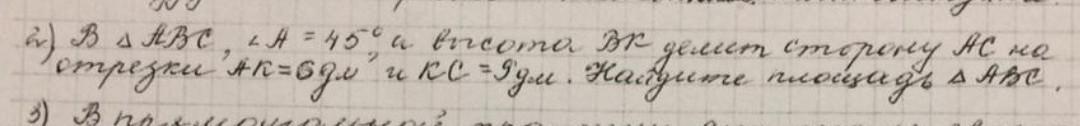 2) В △ ABC, ∠A = 45°, а высота BK делит сторону AC на
отрезки AK=6дм, и KC=9дм. Найдите площадь △ ABC.
3) В